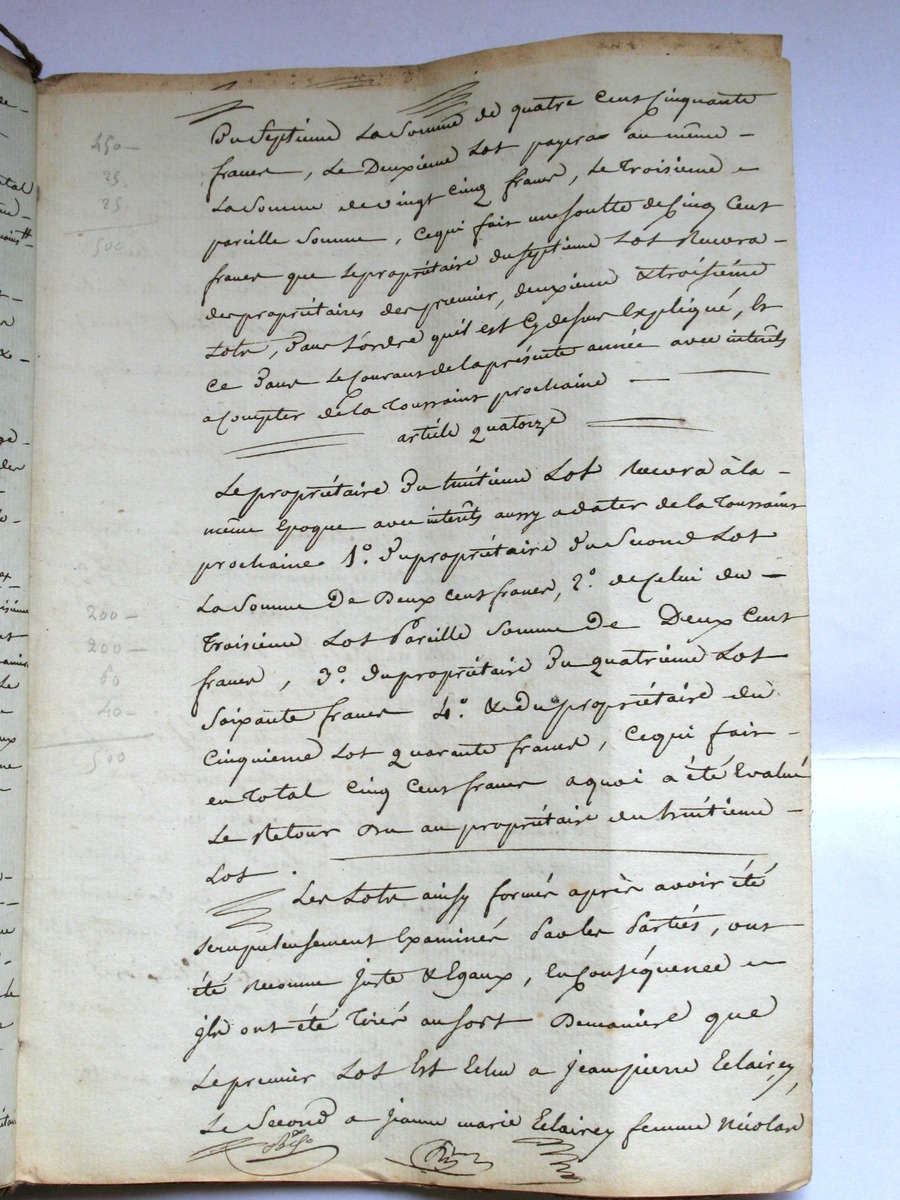 450 —
25
25
500
Du Septieme La Somme de quatre Cent Cinquante
francs, Le Deuxieme Lot payera au même —
La Somme de vingt Cinq francs, Le Troisieme —
pareille Somme, Cequi fait une Soulte de Cinq Cent
francs que Le propriétaire du Septieme Lot Recevra —
des propriétaires des premier, deuxieme & troisiéme
Lots, Dans L'ordre quil est Cy dessus Expliqué, Et
Ce Dans Le Courant de la présente année avec interêts
a Compter de la Toussaint prochaine —
article quatorze
Le propriétaire Du huitieme Lot Recevra à la —
même Epoque avec interêts aussy a dater de la Toussaint
prochaine 1.° Du propriétaire Du Second Lot
La Somme De Deux Cent francs, 2.° de Celui du —
Troisieme Lot Pareille Somme De Deux Cent
francs, 3.° Du propriétaire Du quatrieme Lot
Soixante francs 4.° & du propriétaire du
Cinquieme Lot quarante francs, Cequi fait —
en Total Cinq Cent francs a quoi a été Evalué
Le Retour Du au propriétaire du huitieme —
Lot.
200 —
200 —
60
40 —
500
Les Lots ainsy formés après avoir été
Scrupuleusement Examinés Par les Partiés, ont
été Reconnu Juste & Egaux, En Conséquence —
ils ont été Tirés au sort De maniere que
Le premier Lot Est Echu a Jean pierre Eclairey,
Le Second a Jeanne marie Eclairey femme Nicolas